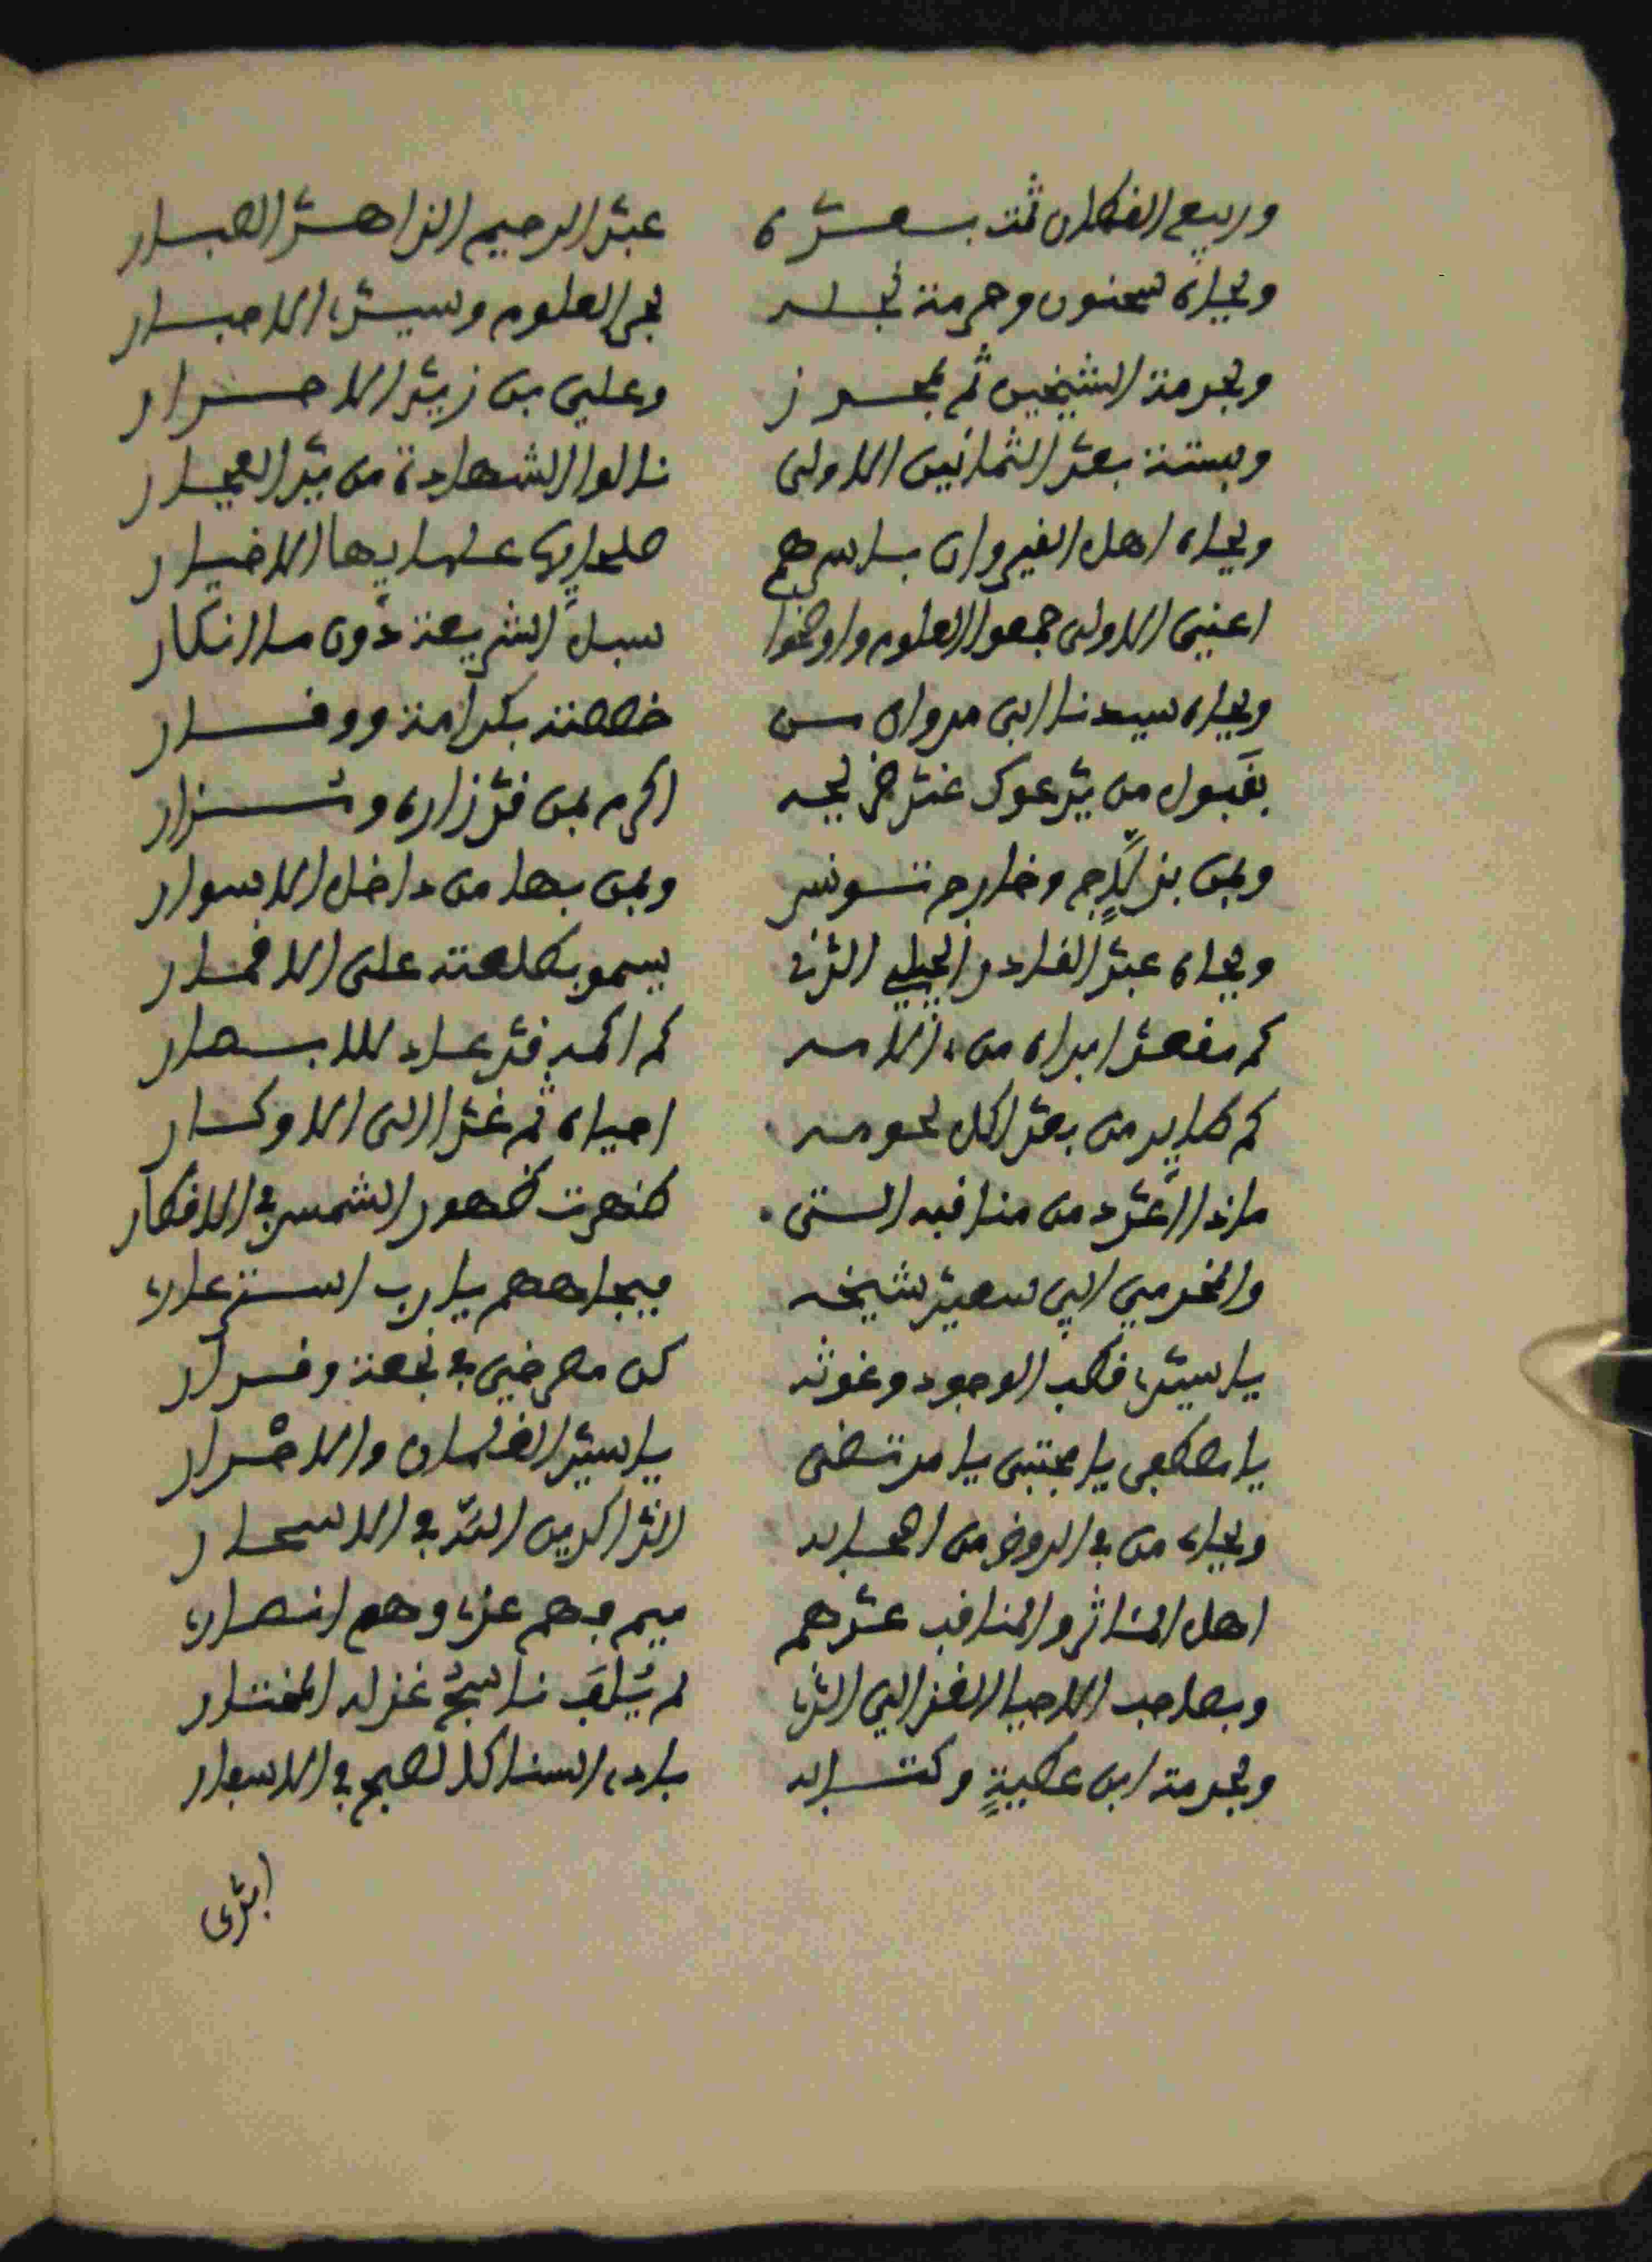 وربيع القطان ثمت بعده عبد الرحيم الزاهد الصبار
وبجاه سحنون وحرمة نجله بحر العلوم وسيد الاحبار
وبحرمة الشيخين ثم بمحرز وعلي بن زيد الاحرار
وبستة بعد الثمانين الاولى نالوا الشهادة من يد الفجار
وبجاه اهل القيروان باسرهم صلحايها علمايها الاخيار
اعني الاولى جمعوا العلوم واوضحوا سبل الشريعة دون ما انكار
وبجاه سيدنا ابي مروان من خصصته بكرامة ووقار
بقبول من يدعوك عند ضريحه اكرم بمن قد زاره ومزار
وبمن بزلاج وخارج تونس وبمن بها من داخل الاسوار
وبجاه عبد القادر الجيلي الذي يسمو بطلعته على الاقمار
كم مقعد ابراه من الامه كم اكمه قد عاد للابصار
كم طاير من بعد اكل لحومه احياه ثم غدا الى الاوكار
ماذا اعدد من مناقبه التي ظهرت ظهور الشمس في الاقطار
والمخرمي ابي سعيد شيخه فبجاههم يا رب استرعاري
يا سيدي قطب الوجود وغوثه كن معرضي في نجعة وقرار
يا مصطفى يا مجتبى يا مرتضى يا سيد الغلمان والاحرار
وبجاه من في الروض من اصحابه الذاكرين الله في الاسحار
اهل المآثر والمناقب عدهم فبهم عزي وهم انصاري
وبصاحب الاحيا الغزالي الذي لم يلف ناسج غزله المختار
وبحرمة ابن عطية وكتابه بادي السنا كالصبح في الاسفار
ابدى